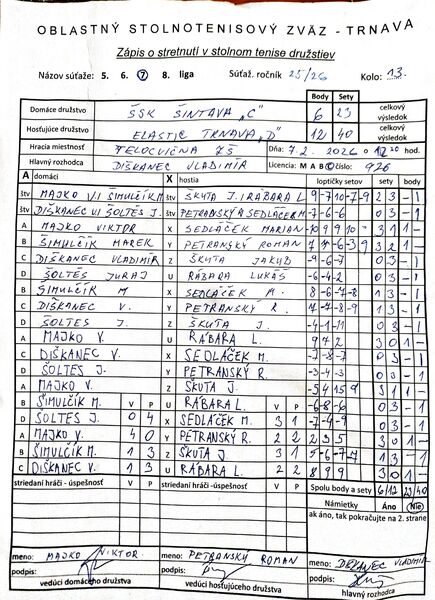 OBLASTNÝ STOLNOTENISOVÝ ZVÄZ - TRNAVA
Zápis o stretnutí v stolnom tenise družstiev
Názov súťaže: 5. 6. 7 8. liga Súťaž. ročník 25/26 Kolo: 13.
Body Sety
Domáce družstvo ŠSK ŠINTAVA „C" 6 23 celkový výsledok
Hosťujúce družstvo ELASTIC TRNAVA „D" 12 40 celkový výsledok
Hracia miestnosť TELOCVIČŇA ZŠ Dňa: 7.2.2026 o hod.
Hlavný rozhodca DIŠKANEC VLADIMÍR Licencia: M A B C číslo: 926
A domáci X hostia loptičky setov sety body
štv MAJKO V. / ŠIMULČÍK M. štv ŠKUTA J. / RÁBARA L. 9 -7 10 -7 -9 2 3 - 1
štv DIŠKANEC V. / ŠOLTÉS J. štv PETRANSKÝ R. SEDLÁČEK M. -7 -6 -6 0 3 - 1
A MAJKO VIKTOR X SEDLÁČEK MARIAN 3 1 1 -
B ŠIMULČÍK MAREK Y PETRANSKÝ ROMAN 3 2 1 -
C DIŠKANEC VLADIMÍR Z ŠKUTA JAKUB -9 -6 -7 0 3 - 1
D ŠOLTÉS JURAJ U RÁBARA LUKÁŠ -6 -4 -2 0 3 - 1
B ŠIMULČÍK M X SEDLÁČEK M. 8 -6 -7 -8 1 3 - 1
C DIŠKANEC V. Y PETRANSKÝ R. 1 3 - 1
D ŠOLTÉS J. Z ŠKUTA J. -4 -1 -11 0 3 - 1
A MAJKO V. U RÁBARA L. 9 7 2 3 0 1 -
C DIŠKANEC V. X SEDLÁČEK M. -7 -8 -7 0 3 - 1
D ŠOLTÉS J. Y PETRANSKÝ R. -3 -4 -3 0 3 - 1
A MAJKO V. Z ŠKUTA J. -5 4 15 9 3 1 1 -
B ŠIMULČÍK M. V P U RÁBARA L. V P -6 -8 -6 0 3 - 1
D ŠOLTÉS J. 0 4 X SEDLÁČEK M. 3 1 -7 -4 -9 0 3 - 1
A MAJKO V. 4 0 Y PETRANSKÝ R. 2 2 2 3 5 3 0 1 -
B ŠIMULČÍK M. 1 3 Z ŠKUTA J. 3 1 5 -6 -7 -7 1 3 - 1
C DIŠKANEC V. 1 3 U RÁBARA L. 2 2 8 9 9 3 0 1 -
striedaní hráči - úspešnosť V P striedaní hráči - úspešnosť V P Spolu body a sety 6 12 23 40
Námietky Áno Nie
ak áno, tak pokračujte na 2. strane
meno: MAJKO VIKTOR. meno: PETRANSKÝ ROMAN meno: DIŠKANEC VLADIMÍR
podpis: podpis: podpis:
vedúci domáceho družstva vedúci hosťujúceho družstva hlavný rozhodca